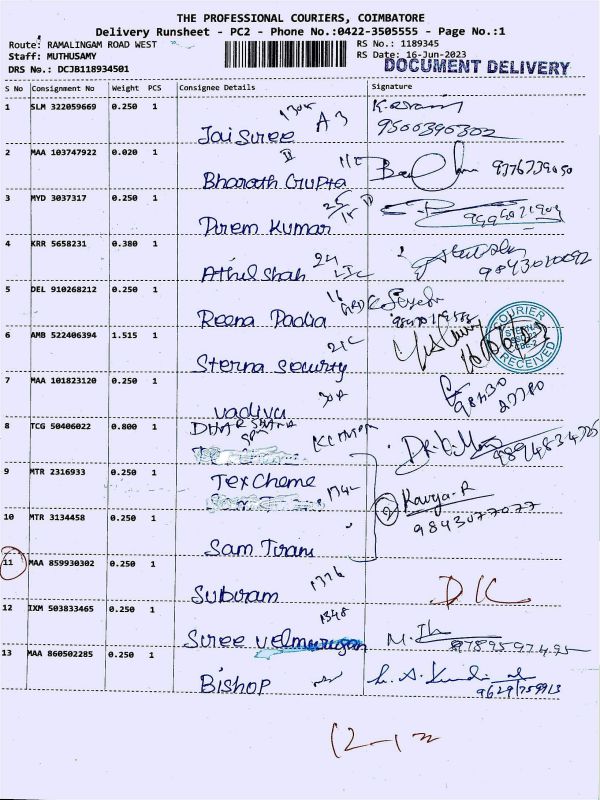 THE PROFESSIONAL COURIERS, COIMBATORE
Delivery Runsheet - PC2 - Phone No.:0422-3505555 - Page No.:1
Route: RAMALINGAM ROAD WEST RS No.: 1189345
Staff: MUTHUSAMY RS Date: 16-Jun-2023
DRS No.: DCJB118934501 DOCUMENT DELIVERY
S No Consignment No Weight PCS Consignee Details Signature
1 SLM 322059669 0.250 1
Jai Suree A3 9500396302
2 MAA 103747922 0.020 1
Bharath Gupta 9376739050
3 MYD 3037317 0.250 1
Prem Kumar
4 KRR 5658231 0.380 1
Athul Shah 24 9843010092
5 DEL 910268212 0.250 1
Reena Padia
6 AMB 522406394 1.515 1
Sterna Security 21C
COURIER
RECEIVED
7 MAA 101823120 0.250 1
Vadivu 98430 27780
8 TCG 50406022 0.800 1
DHARSHANA
9 MTR 2316933 0.250 1
Tex Cheme
Kavya-R
9843077077
10 MTR 3134458 0.250 1
Sam Tirani
11 MAA 859930302 0.250 1
Suburam DK
12 IXM 503833465 0.250 1
Suree Velmurugan 1348
13 MAA 860502285 0.250 1
Bishop 9629759913